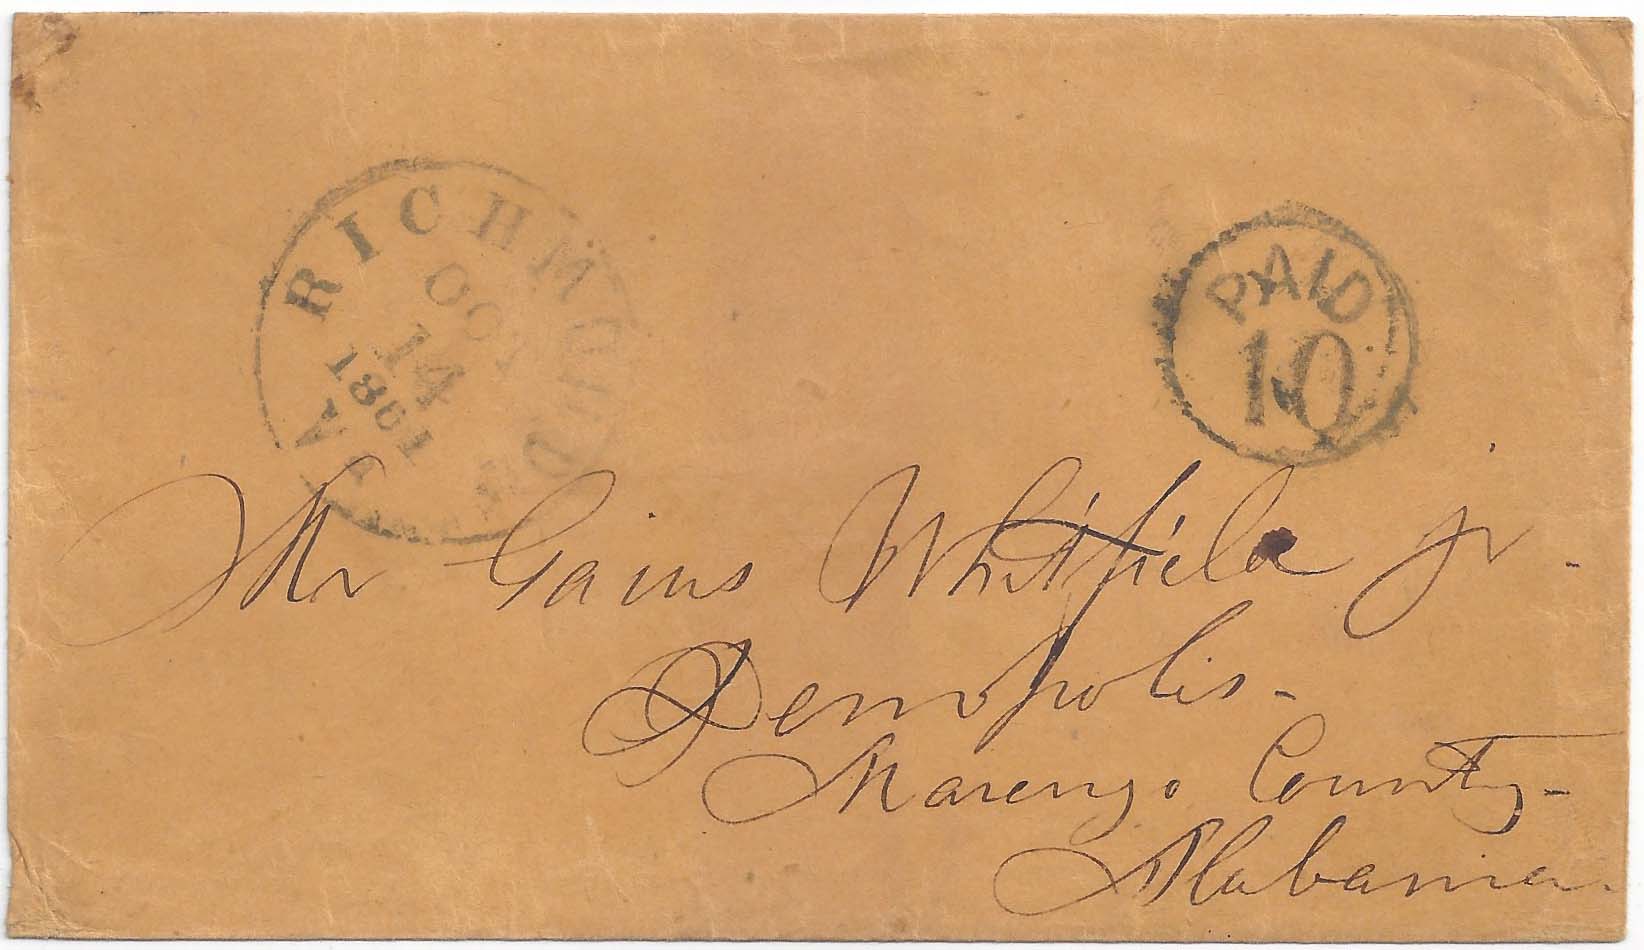 RICHMOND VA.
OCT
14
1861
PAID
10
Mr Gaius Whitfield jr.
Demopolis-
Marengo County-
Alabama.